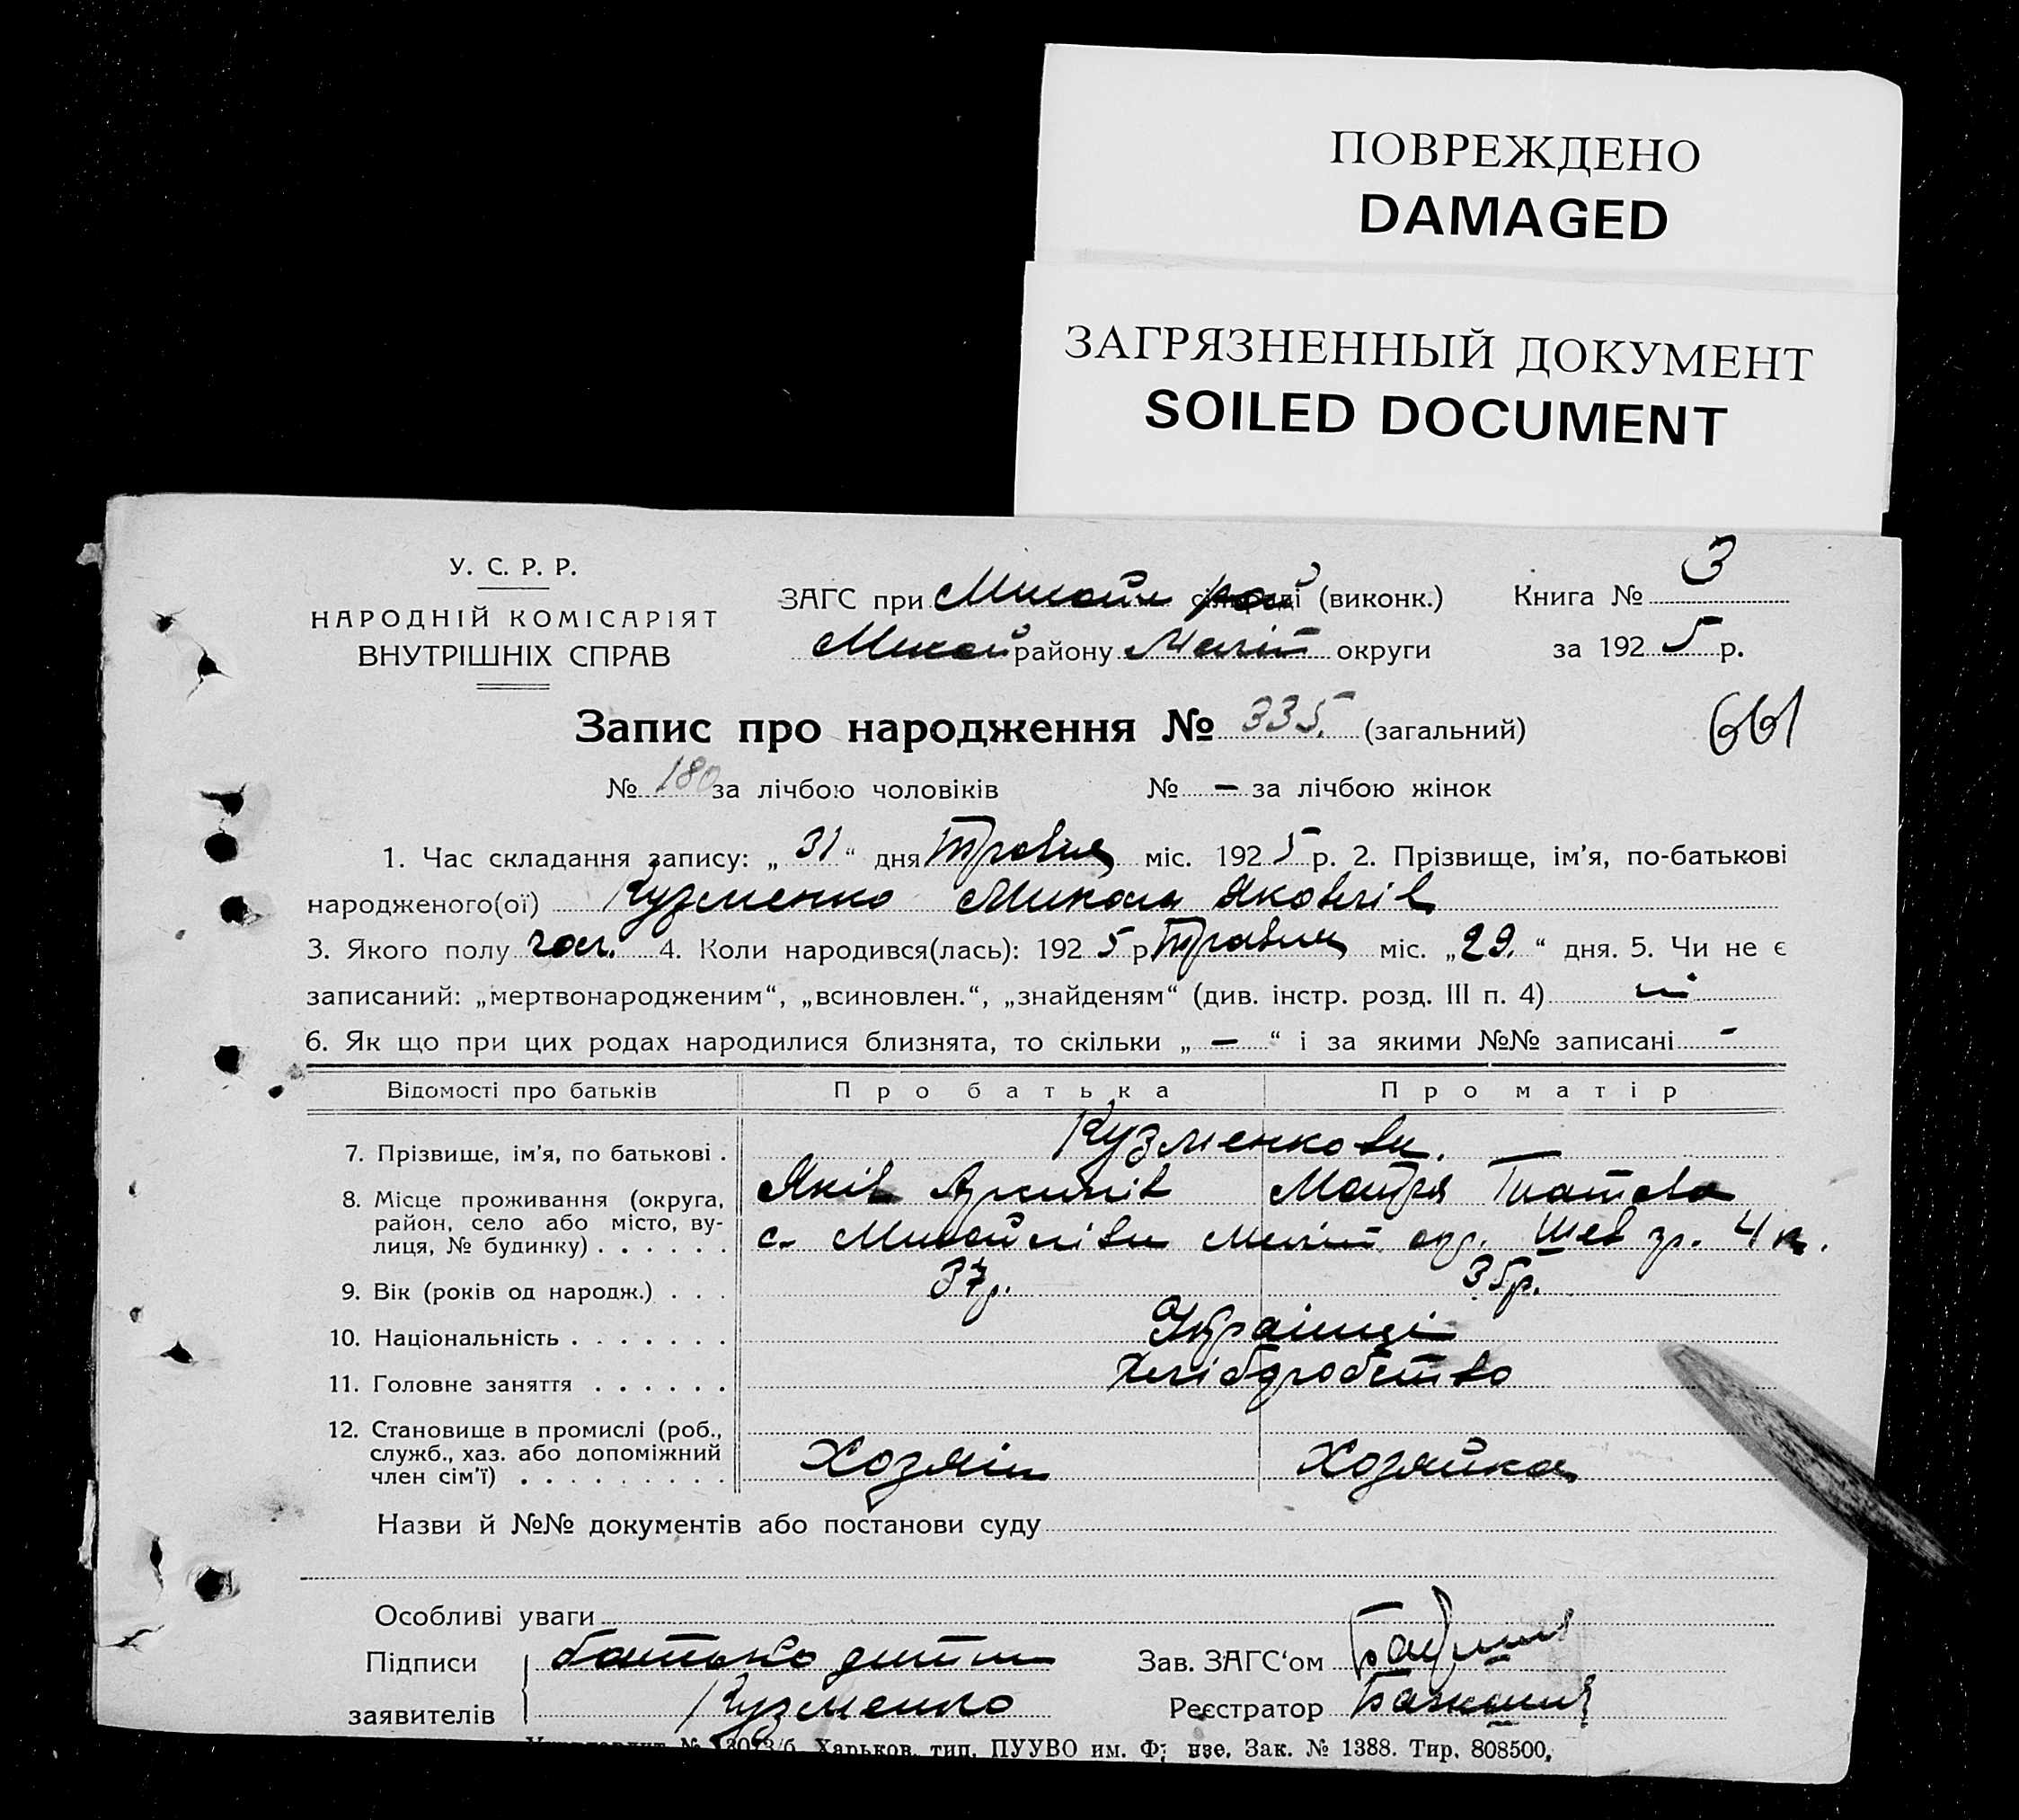 ПОВРЕЖДЕНО
DAMAGED
ЗАГРЯЗНЕННЫЙ ДОКУМЕНТ
SOILED DOCUMENT
У. С. Р. Р.
НАРОДНІЙ КОМІСАРІЯТ
ВНУТРІШНІХ СПРАВ
ЗАГС при Михайл рай (виконк.) Книга № 3
Михай району Меліт округи за 1925 р.
Запис про народження № 335. (загальний)
661
№ 180 за лічбою чоловіків № — за лічбою жінок
1. Час складання запису: „ 31 “ дня Травня міс. 1925 р. 2. Прізвище, ім'я, по-батькові
народженого(ої) Кузменко Микола Яковлів
3. Якого полу чол. 4. Коли народився(лась): 1925 р Травня міс. „ 29. “ дня. 5. Чи не є
записаний: „мертвонародженим“, „всиновлен.“, „знайденям“ (див. інстр. розд. III п. 4) ні
6. Як що при цих родах народилися близнята, то скільки „ — “ і за якими №№ записані -
Відомості про батьків Про батька Про матір
7. Прізвище, ім'я, по батькові . Кузменкови.
Яків Архипів Мотря Гнатова
8. Місце проживання (округа, район, село або місто, вулиця, № будинку) . . . . . . с. Михайлівки Меліт. окр. Шев гр. 4 п.
9. Вік (років од народж.) . . . 37р. 35р.
10. Національність . . . . . . . Українці
11. Головне заняття . . . . . . Хліборобство
12. Становище в промислі (роб., служб., хаз. або допоміжний член сім'ї) . . . . . . . . . Хозяїн Хозяйка
Назви й №№ документів або постанови суду
Особливі уваги
Підписи заявителів батько дитини
Кузменко
Зав. ЗАГС'ом
Реєстратор
Харьков, тип. ПУУВО им. Зак. № 1388. Тир. 808500.